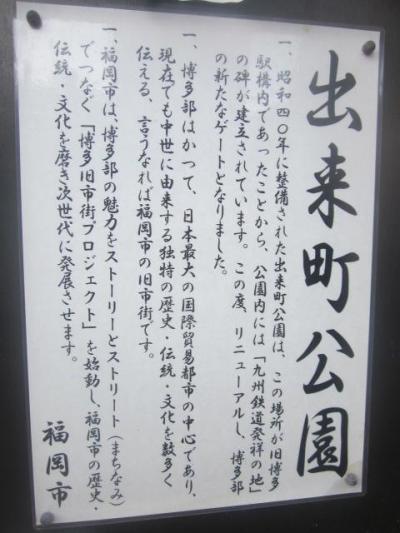 出来町公園
一、昭和四〇年に整備された出来町公園は、この場所が旧博多
駅構内であったことから、公園内には「九州鉄道発祥の地」
の碑が建立されています。この度、リニューアルし、博多部
の新たなゲートとなりました。
一、博多部はかつて、日本最大の国際貿易都市の中心であり、
現在でも中世に由来する独特の歴史・伝統・文化を数多く
伝える、言うなれば福岡市の旧市街です。
一、福岡市は、博多部の魅力をストーリーとストリート（まちなみ）
でつなぐ「博多旧市街プロジェクト」を始動し、福岡市の歴史・
伝統・文化を磨き次世代に発展させます。
福岡市